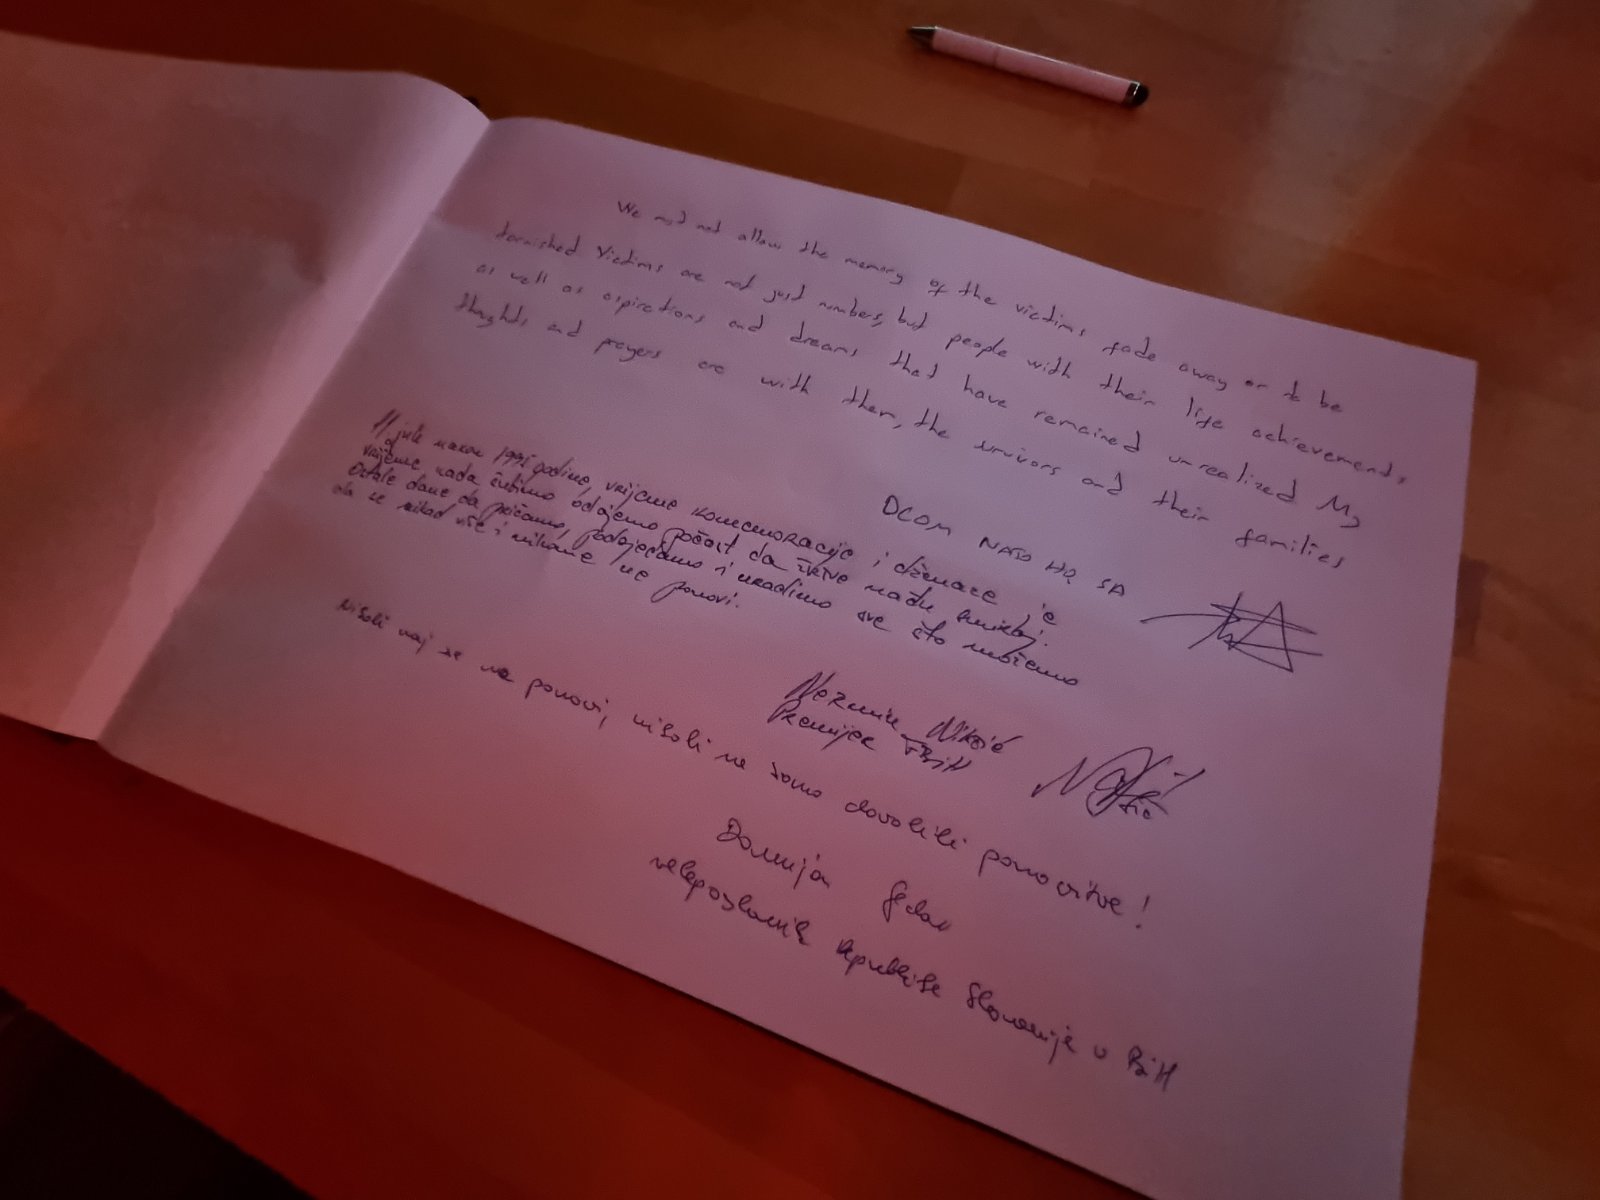 We must not allow the memory of the victims fade away or to be
tarnished Victims are not just numbers, but people with their life achievements,
as well as aspirations and dreams that have remained unrealized My
thoughts and prayers are with them, the survivors and their families
DCOM NATO HQ SA
11. juli nakon 1995 godine, vrijeme komemoracije i dženaze je
vrijeme kada šutimo odajemo počast da žrtve nađu smiraj.
Ostale dane da pričamo, podsjećamo i uradimo sve što možemo
da se nikad više i nikome ne ponovi.
Nermin Nikšić
Premijer FBiH
Nikoli naj se ne ponovi, nikoli ne smemo dovoliti ponovitve!
Damijan Sedar
veleposlanik Republike Slovenije v BiH